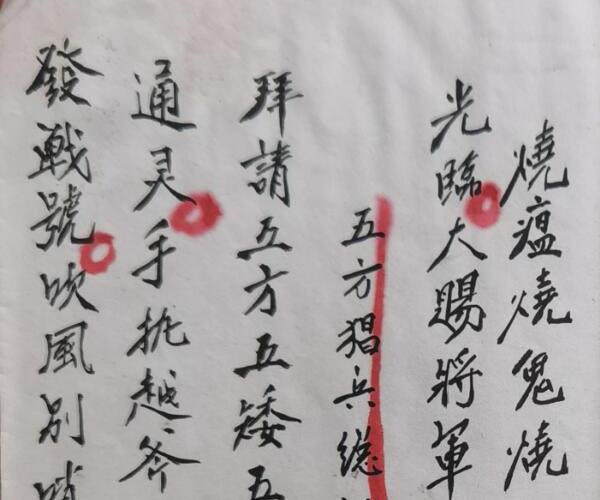 燒瘟燒鬼燒
光臨大賜將軍
五方猖兵總
拜請五方五矮五
通灵手执越斧
發戰號吹風別哨